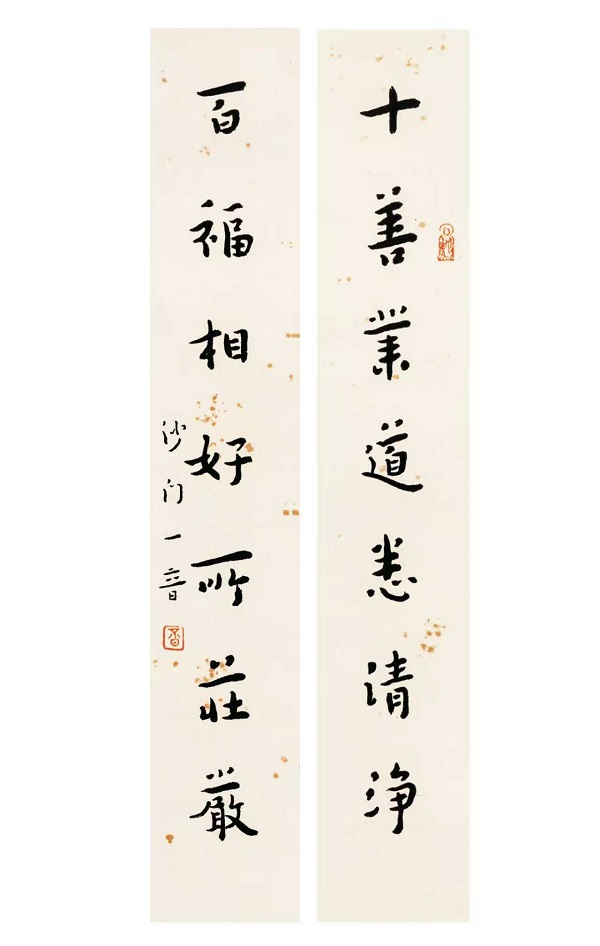 十善業道悉清淨
百福相好所莊嚴
沙门一音